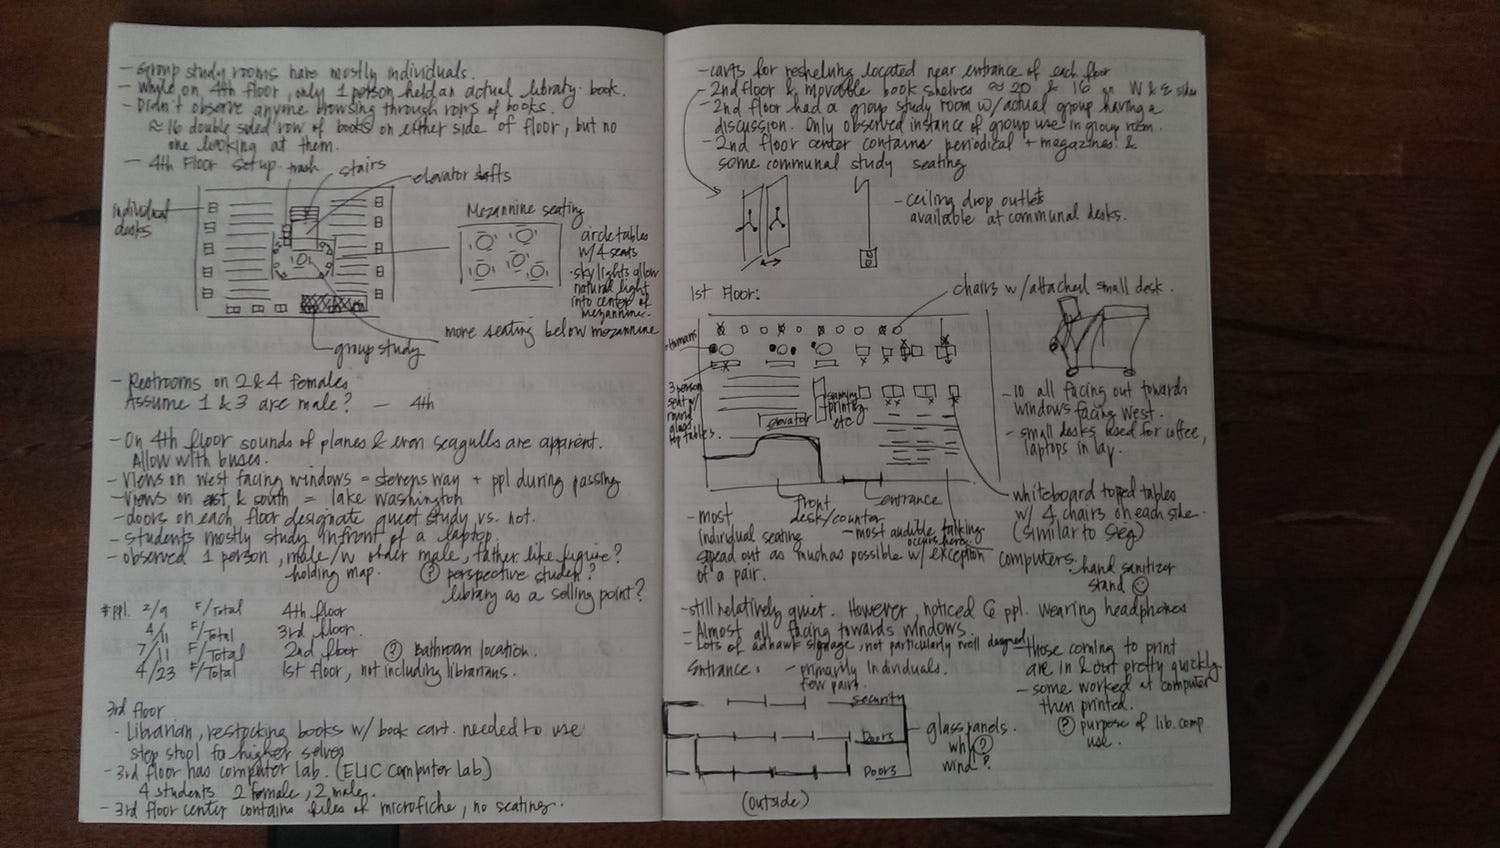 - Group study rooms have mostly individuals.
- While on 4th floor, only 1 person held an actual library book.
- Didn't observe anyone browsing through rows of books.
≈ 16 double sided row of books on either side of floor, but no
one looking at them.
- 4th Floor Setup
trash
stairs
elevator
individual
desks
Mezannine seating
circle tables
w/ 4 seats
- sky lights allow
natural light
into center of
mezannine.
more seating below mezannine
group study
- Restrooms on 2 & 4 females
Assume 1 & 3 are male? - 4th
- On 4th floor sounds of planes & even seagulls are apparent.
with buses.
- Views on west facing windows = stevens way + ppl during passing
- Views on east & south = lake washington
- doors on each floor designate quiet study vs. not.
- students mostly study infront of a laptop.
- observed 1 person, male/w older male, father like figure?
holding map. ? perspective student?
library as a selling point?
# ppl. 2/9 F/Total 4th floor
4/11 F/Total 3rd floor.
7/11 F/Total 2nd floor ? bathroom location.
4/23 F/Total 1st floor, not including librarians.
3rd floor
- Librarian, restocking books w/ book cart. needed to use
step stool for higher selves
- 3rd floor has computer lab. (ELIC computer lab)
4 students 2 female, 2 male.
- 3rd floor center contains files of microfiche, no seating.
- carts for reshelving located near entrance of each floor
- 2nd floor & movable book shelves ≈ 20 & 16 on W & E sides
- 2nd floor had a group study room w/ actual group having a
discussion. Only observed instance of group use in group room.
- 2nd floor center contains periodical + magazines &
some communal study seating
- ceiling drop outlets
available at communal desks.
1st Floor:
chairs w/ attached small desk.
3 person
seat w/
round
glass
top tables.
elevator
printing
etc
- 10 all facing out towards
windows facing west.
- small desks used for coffee,
laptops in lay.
front
desk/counter
entrance
whiteboard topped tables
w/ 4 chairs on each side.
(similar to sieg)
- most
individual seating
spread out as much as possible w/ exception
of a pair.
- most audible talking
occurs here.
computers.
hand sanitizer
stand
- still relatively quiet. However, noticed 6 ppl. wearing headphones
- Almost all facing towards windows.
- Lots of adhawk signage, not particularly well designed
Entrance: - primarily individuals.
few pairs.
- those coming to print
are in & out pretty quickly
- some worked at computer
then printed.
? purpose of lib. comp
use.
security
Doors
glass panels.
why?
wind?
Doors
(outside)